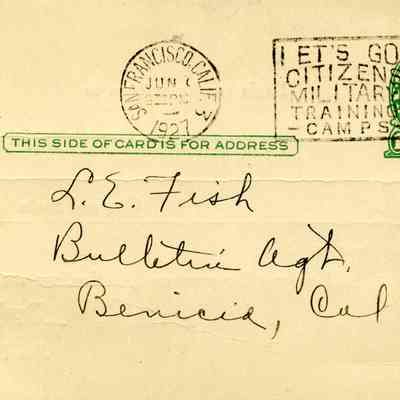 SAN FRANCISCO, CALIF. 3
JUN
1927
LET'S GO
CITIZENS
MILITARY
TRAINING
-CAMPS
THIS SIDE OF CARD IS FOR ADDRESS
L. E. Fish
Bulletin Agt.
Benicia, Cal